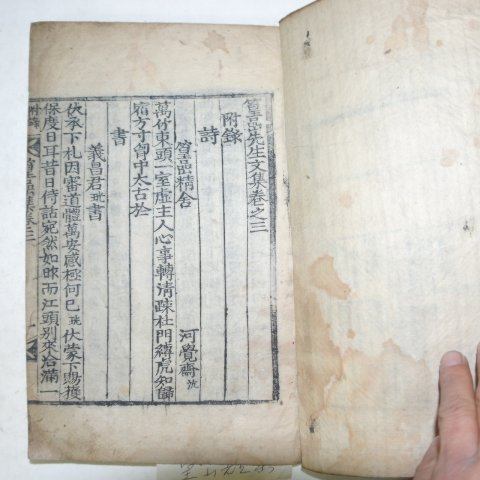 篔嵒先生文集卷之三
附錄
詩
篔嵒精舍
河覺齋沆
萬竹東頭一室虛主人心事轉淸疎杜門縛虎知歸
宿方寸胷中太古於
書
義昌君珖書
伏承下札因審道體萬安感極何已珖伏蒙下賜獲
保度日耳昔日侍話宛然如昨而江頭別來洽滿一
附錄